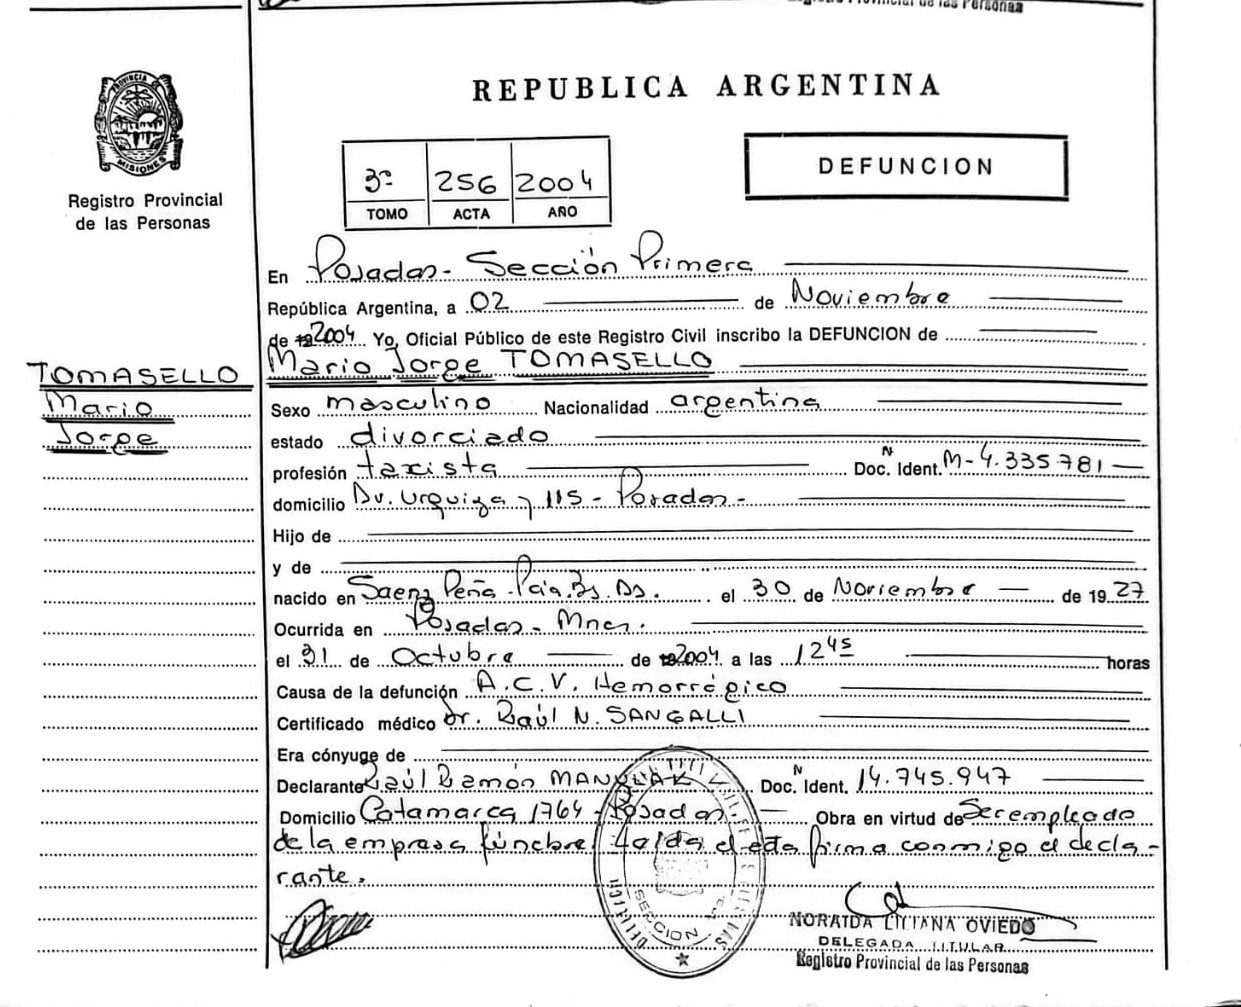 Registro Provincial de las Personas
REPUBLICA ARGENTINA
PROVINCIA
MISIONES
Registro Provincial
de las Personas
3º 256 2004
TOMO ACTA AÑO
DEFUNCION
En Posadas- Sección Primera
República Argentina, a 02 de Noviembre
de 2004 Yo, Oficial Público de este Registro Civil inscribo la DEFUNCION de
Mario Jorge TOMASELLO
TOMASELLO
Mario
Jorge
Sexo masculino Nacionalidad argentina
estado divorciado
profesión taxista Doc. Ident. Nº M-4.335.781
domicilio Av. Urquiza y 115 - Posadas-
Hijo de
y de
nacido en Saenz Peña-Pcia.Bs.As. el 30 de Noviembre de 1927
Ocurrida en Posadas- Mnes.
el 31 de Octubre de 2004 a las 12 45 horas
Causa de la defunción A.C.V. Hemorrágico
Certificado médico Dr. Raúl N. SANGALLI
Era cónyuge de
Declarante Raúl Ramón Doc. Ident. N 14.745.947
Domicilio Catamarca 1764 - Posadas Obra en virtud de Ser empleado
de la empresa fúnebre. Leída el acta firma conmigo el decla-
rante.
SECCION 1ra.
NORAIDA LILIANA OVIEDO
DELEGADA TITULAR
Registro Provincial de las Personas